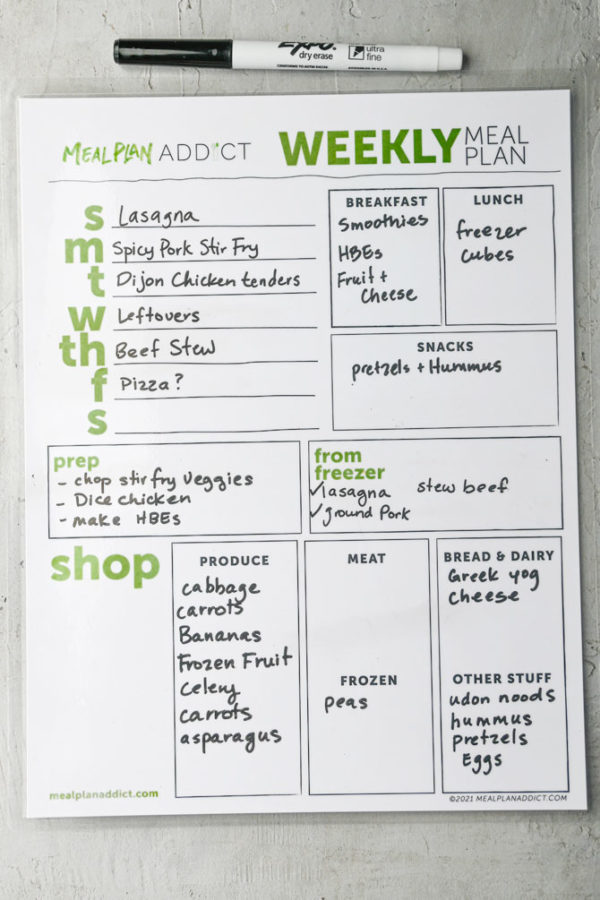 EXPO.
dry erase
ultra
fine
MEAL PLAN ADDICT
WEEKLY MEAL PLAN
s Lasagna
m Spicy Pork Stir Fry
t Dijon Chicken tenders
w Leftovers
th Beef Stew
f Pizza?
s
BREAKFAST
Smoothies
HBEs
Fruit +
Cheese
LUNCH
freezer
cubes
SNACKS
pretzels + Hummus
prep
- chop stir fry veggies
- Dice chicken
- make HBEs
from
freezer
✓lasagna
✓ground Pork
stew beef
shop
PRODUCE
cabbage
carrots
Bananas
Frozen Fruit
Celery
carrots
asparagus
MEAT
FROZEN
peas
BREAD & DAIRY
Greek yog
cheese
OTHER STUFF
udon noods
hummus
pretzels
Eggs
mealplanaddict.com
©2021 MEALPLANADDICT.COM